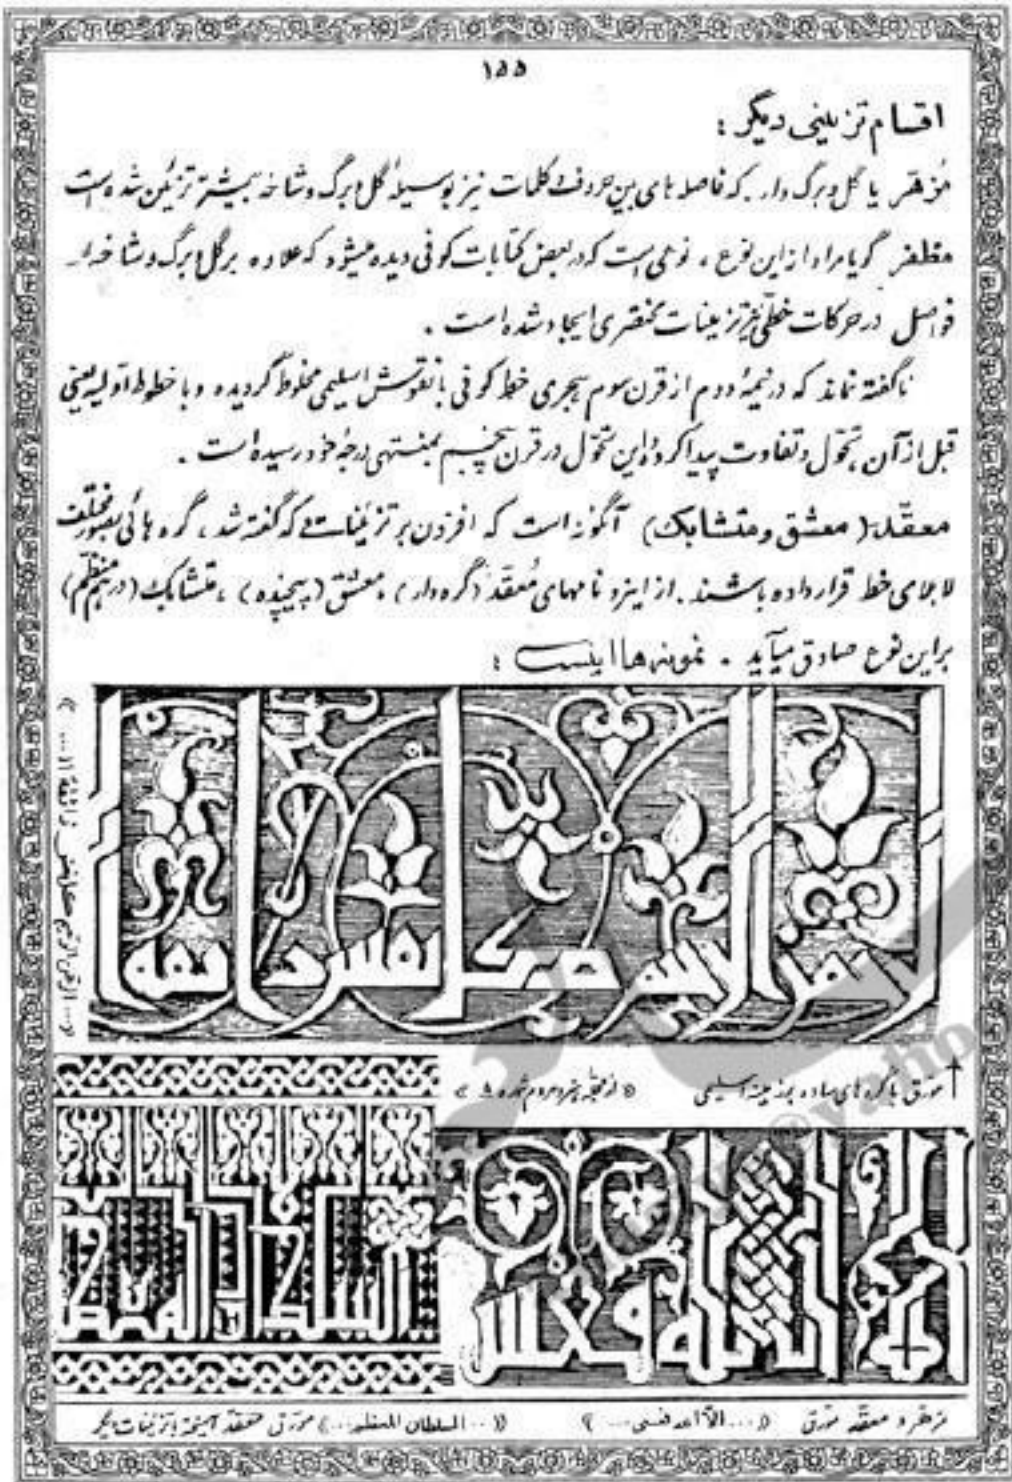 ۱۵۵
اقسام تزیینی دیگر :
مُزهّر یا گل و برگ دار که فاصله های بین حروف کلمات نیز بوسیلهٔ گل و برگ و شاخه بیشتر تزئین شده است
مظفر گویا مراد از این نوع ، نوعی است که در بعض کتابات کوفی دیده میشود که علاوه بر گل و برگ و شاخه در
فواصل در حرکات خطی نیز تزیینات مختصری ایجاد شده است .
ناگفته نماند که در نیمهٔ دوم از قرن سوم هجری خط کوفی با نقوش اسلیمی مخلوط گردیده و با خطوط اولیه یعنی
قبل از آن ، تحوّل و تفاوت پیدا کرد و این تحوّل در قرن پنجم بمنتهی درجهٔ خود رسیده است .
معقّد ( معشق و متشابک ) آنگونه است که افزون بر تزئیناتی که گفته شد ، گره هائی بصور مختلف
لابلای خط قرار داده باشند . از اینرو نامهای مُعقّد ( گره دار ) ، معشق ( پیچیده ) ، متشابک ( درهم منظّم )
براین نوع صادق میآید . نمونه ها اینست :
مورّق با گره های ساده بر زمینه اسلیمی « از مجلهٔ هنر و مردم شماره ۸ »
مزهّر و معقّد مورّق « ... » « ... السلطان المعظم ... » مورّق معقّد آمیخته با تزئینات دیگر